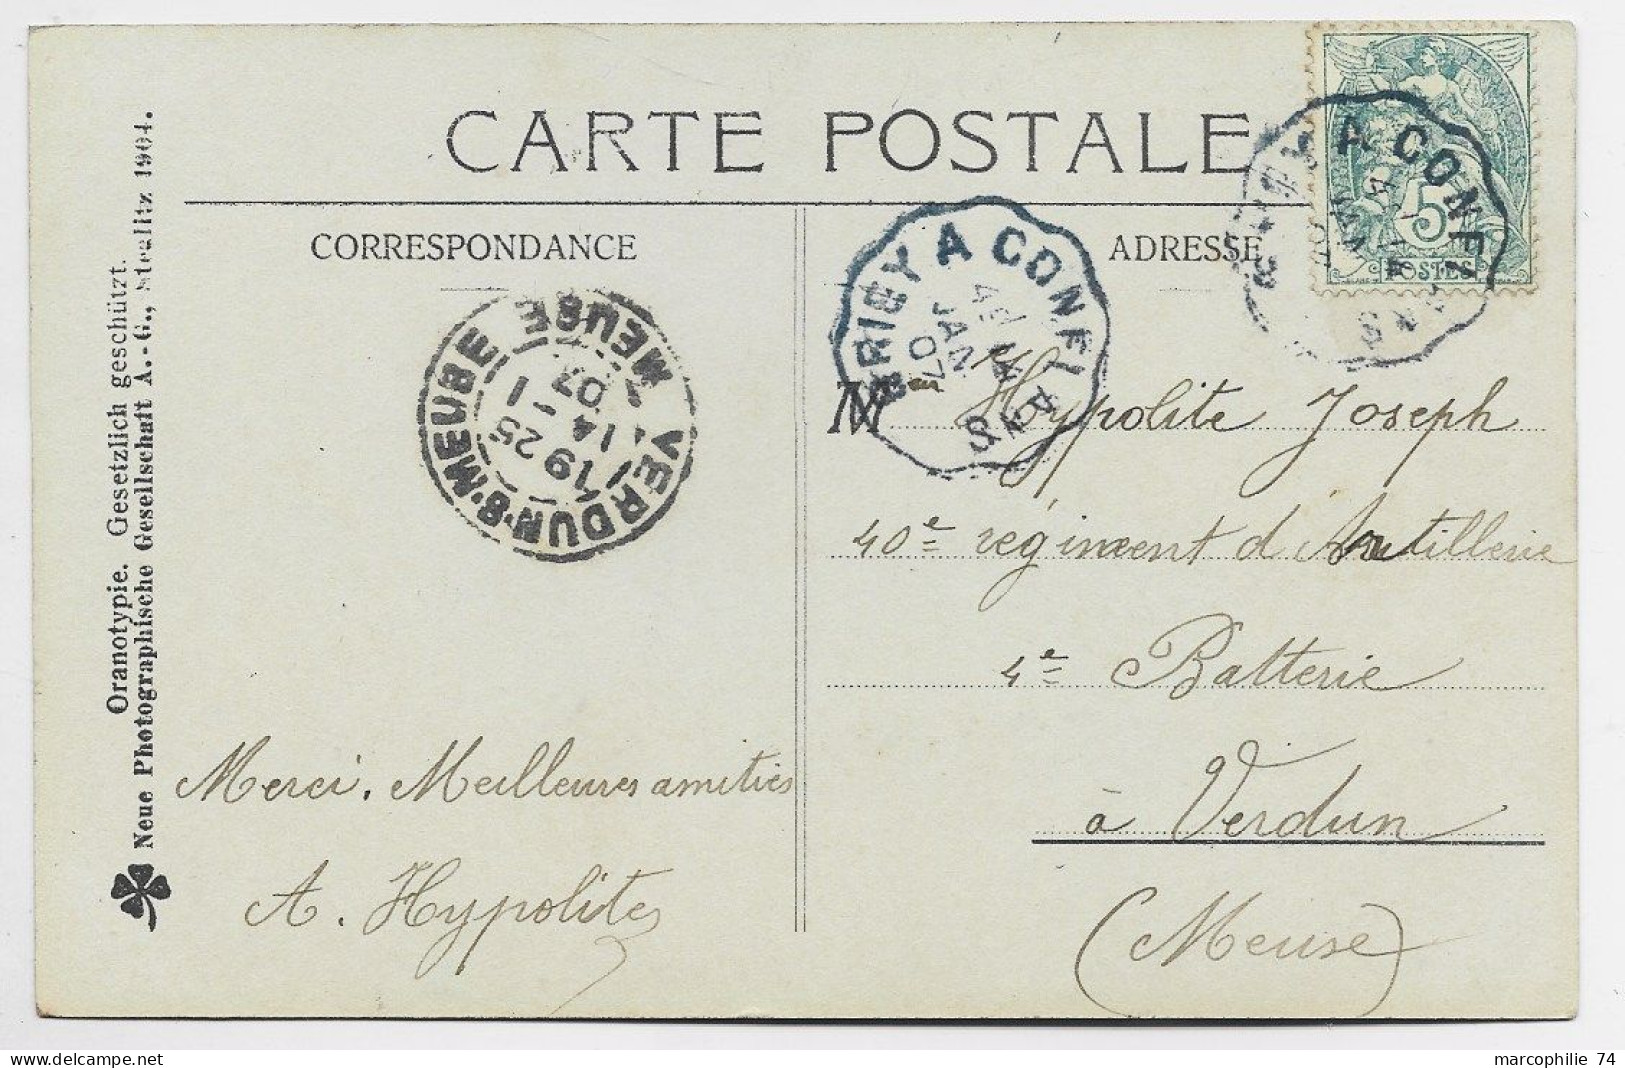 CARTE POSTALE
CORRESPONDANCE
ADRESSE
Oranotypie. Gesetzlich geschützt.
Neue Photographische Gesellschaft A.-G., Steglitz 1904.
BRIEY A CONFLANS
4E
14
JAN
07
A CONFLANS
5
POSTES
VERDUN-S-MEUSE MEUSE
19 25
14 1
07
Mr Hypolite Joseph
40e régiment d'Artillerie
4e Batterie
à Verdun
(Meuse)
Merci. Meilleures amitiés
A. Hypolite
marcophilie 74